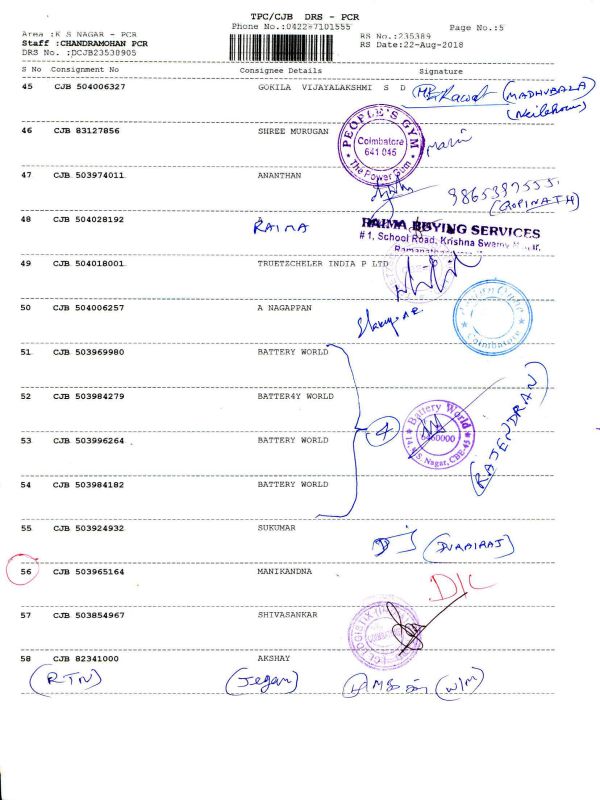 TPC/CJB DRS - PCR
Phone No.:0422-7101555
Page No.:5
Area :K S NAGAR - PCR
RS No.:235389
Staff :CHANDRAMOHAN PCR
RS Date:22-Aug-2018
DRS No. :DCJB23538905
S No Consignment No Consignee Details Signature
45 CJB 504006327 GOKILA VIJAYALAKSHMI S D (MADHUBALA)
46 CJB 83127856 SHREE MURUGAN
PEOPLE'S GYM
Coimbatore
641 045
The Power Gym
47 CJB 503974011 ANANTHAN
(GOPINATH)
48 CJB 504028192 RAIMA
RAIMA BUYING SERVICES
# 1, School Road, Krishna Swamy
49 CJB 504018001 TRUETZCHELER INDIA P LTD
50 CJB 504006257 A NAGAPPAN
Coimbatore
51 CJB 503969980 BATTERY WORLD
52 CJB 503984279 BATTER4Y WORLD
53 CJB 503996264 BATTERY WORLD
4
Battery World
S. Nagar, CBE-45
(RAJENDRAN)
54 CJB 503984182 BATTERY WORLD
55 CJB 503924932 SUKUMAR
(DURAIRAJ)
56 CJB 503965164 MANIKANDNA
D/L
57 CJB 503854967 SHIVASANKAR
58 CJB 82341000 AKSHAY
(RTN) (Jegan) (W/M)